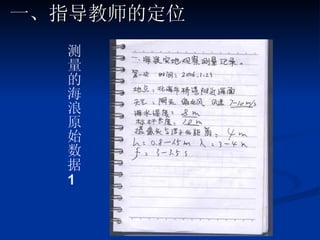 一、指导教师的定位
测量的海浪原始数据1
二、海浪实地观察测量记录。
第一次 时间：2006.1.25
地点：北海
天气：阴天 偏北风 风速7-10m/s
海水深度：8m
标杆长度：12m
摄像头与浮标的距离：4m
h：0.8-1.5m λ：3-4m
f：3-3.5s